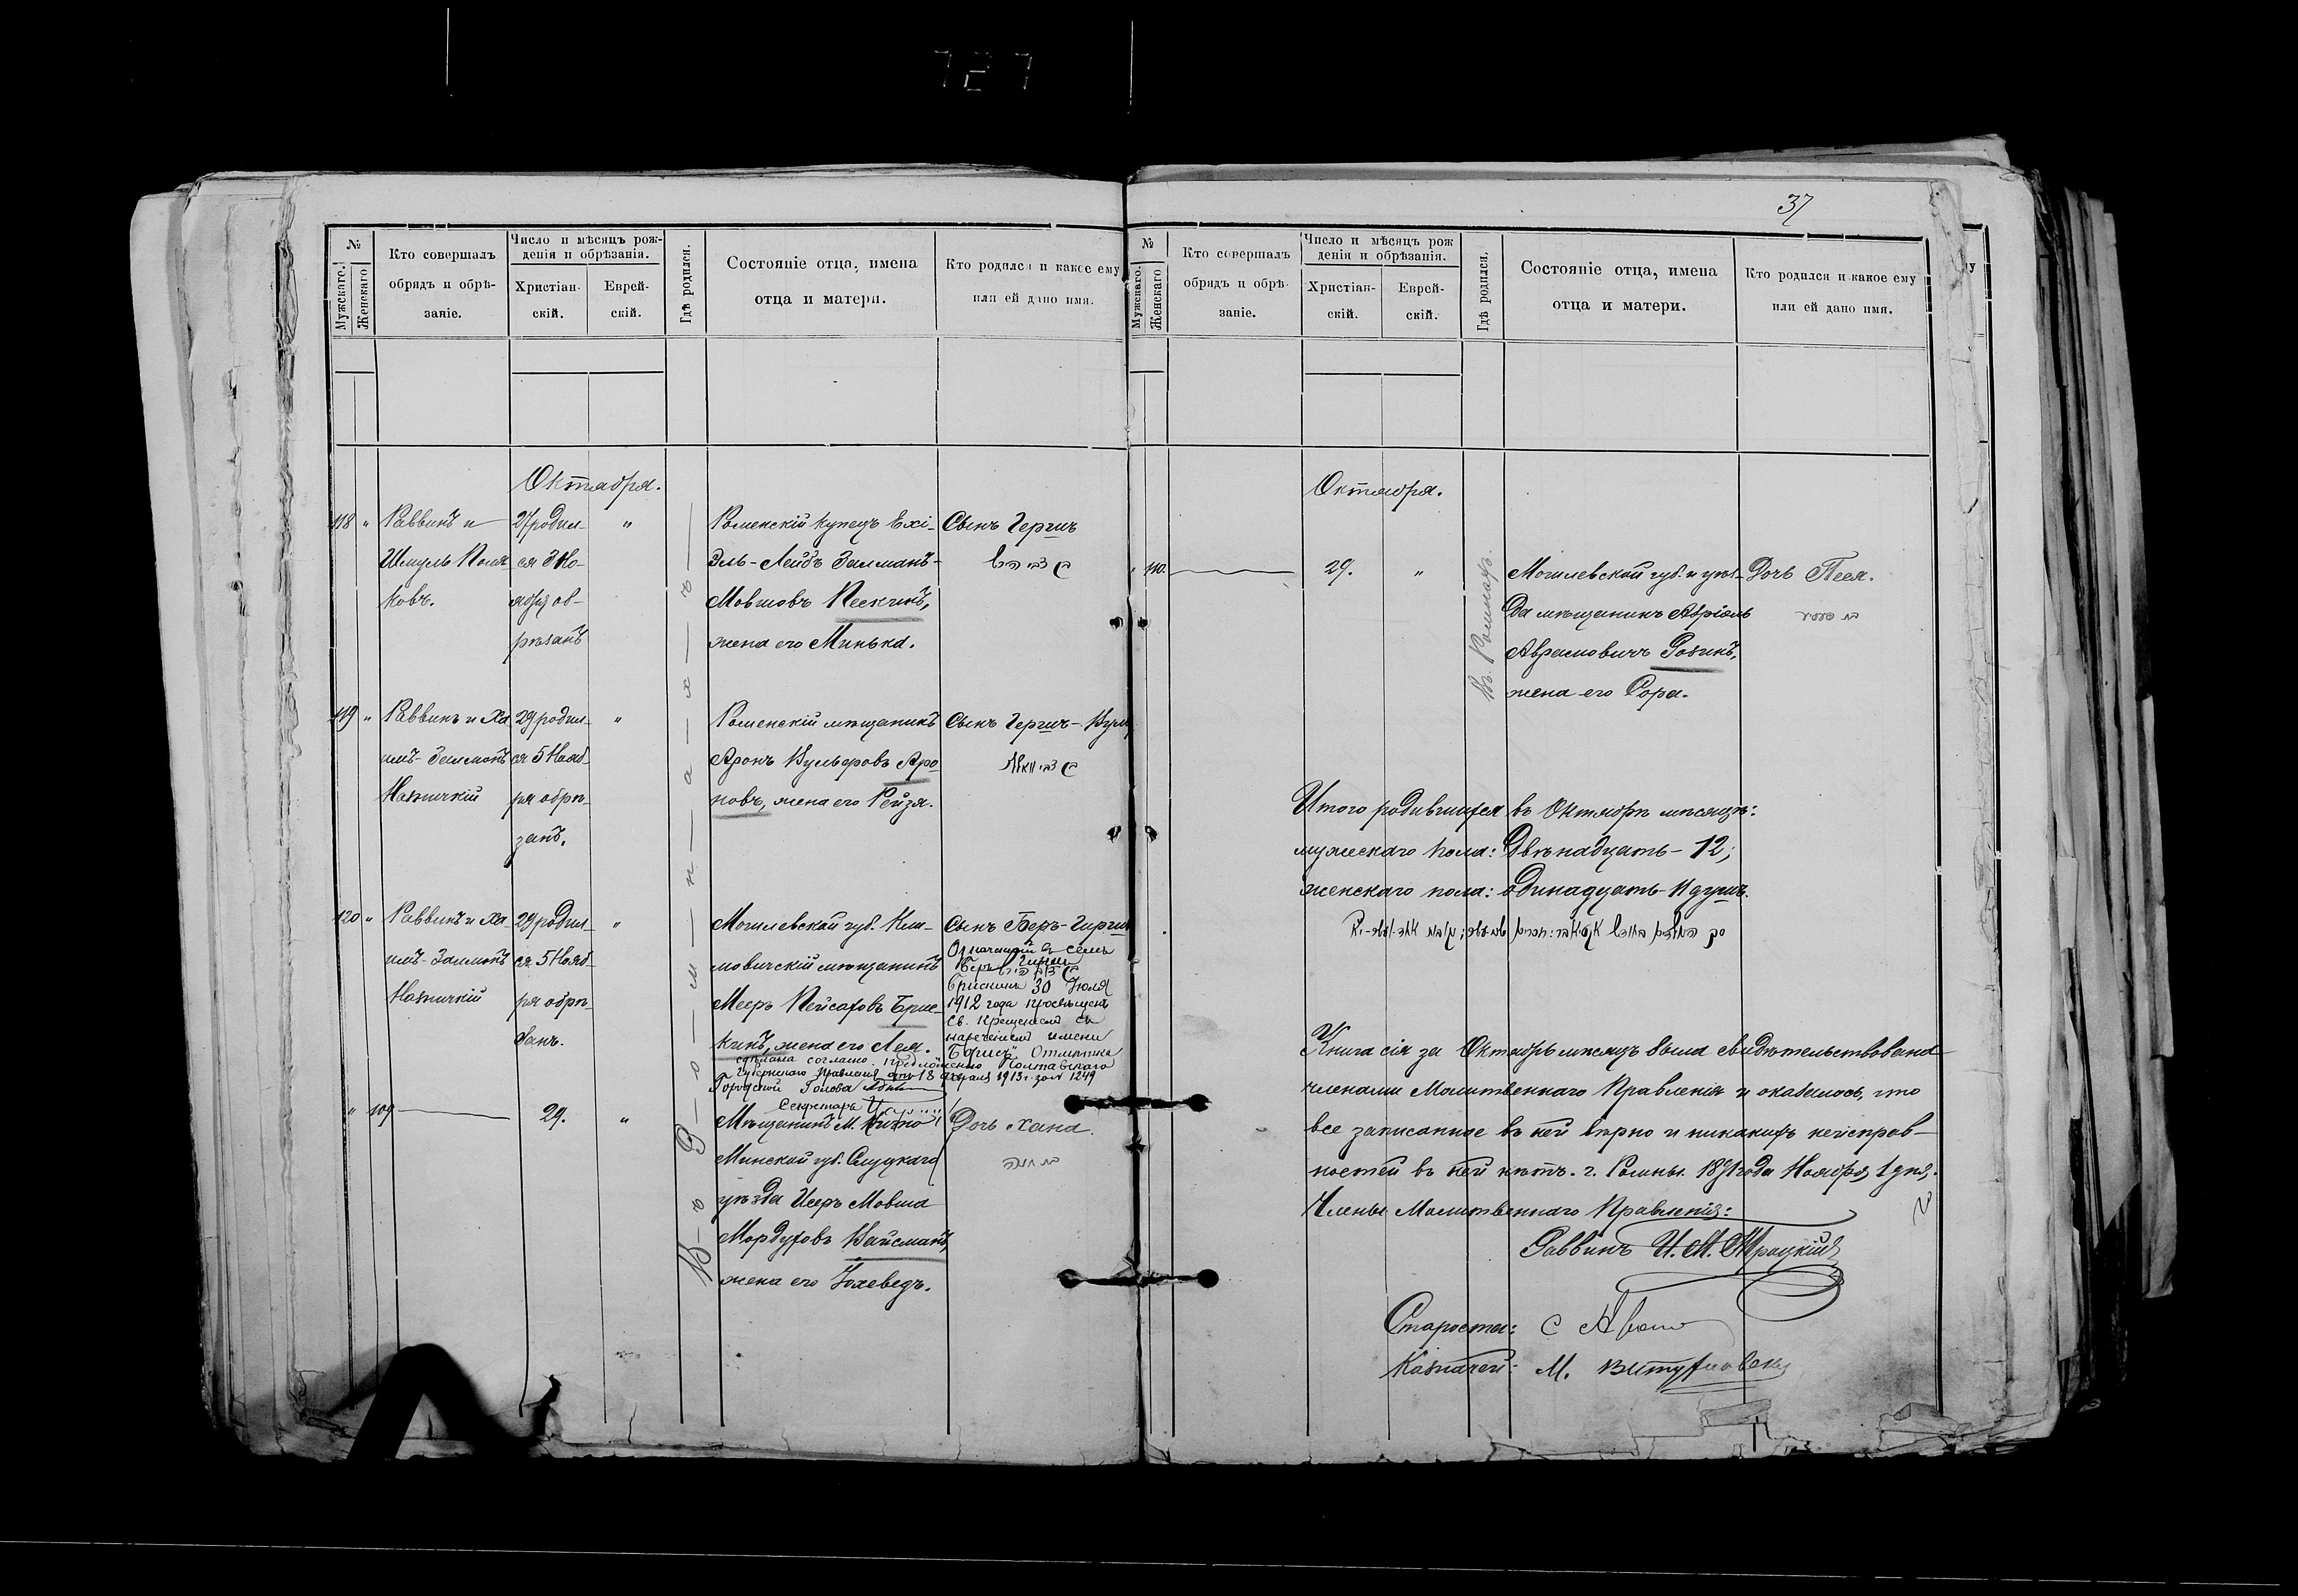 37
№
Мужскаго.
Женскаго
Кто совершалъ
обрядъ и обрѣ-
заніе.
Число и мѣсяцъ рож-
денія и обрѣзанія.
Христіан-
скій.
Еврей-
скій.
Гдѣ родился.
Состояніе отца, имена
отца и матери.
Кто родился и какое ему
или ей дано имя.
Октября.
118 " Раввинъ и
Шмуль
ковъ.
27 родил-
ся 3 Но-
ября об-
рѣзанъ
"
Роменскій купецъ Ехі-
эль-Лейбъ Залманъ-
Мовшовъ Пескинъ,
жена его Минька.
Сынъ Гершъ
119 " Раввинъ и Ха
имъ-Залманъ
29 родил-
ся 5 Нояб-
ря обрѣ-
занъ.
"
Роменскій мѣщанинъ
Аронъ Вульфовъ Аро-
новъ, жена его Рейзя.
Сынъ Гершъ-
120 " Раввинъ и Ха-
имъ-Залманъ
29 родил-
ся 5 Нояб-
ря обрѣ-
занъ.
"
Могилевской губ. Кли-
мовичскій мѣщанинъ
Мееръ Пейсаховъ Брис-
кинъ, жена его Лея.
Сынъ Беръ-Гиршъ
Означенный въ семъ
Беръ Гиршъ
Брискинъ 30 Іюля
1912 года просвѣщенъ
Св. Крещеніемъ съ
нареченіемъ имени
"Борисъ". Отмѣтка
сдѣлана согласно предложенію Полтавскаго
Губернскаго Правленія отъ 18 апрѣля 1913 г. за № 1249
Городской Голова
Секретарь
" 109
29.
"
Мѣщанинъ м.
Минской губ. Слуцкаго
уѣзда Исеръ Мовша
Мордуховъ Вайсманъ,
жена его Іохеведъ.
Дочь Хана.
בת חנה
В-ъ Р-о-м-н-а-х-ъ
№
Мужскаго.
Женскаго
Кто совершалъ
обрядъ и обрѣ-
заніе.
Число и мѣсяцъ рож
денія и обрѣзанія.
Христіан-
скій.
Еврей-
скій.
Гдѣ родился.
Состояніе отца, имена
отца и матери.
Кто родился и какое ему
или ей дано имя.
Октября.
" 110.
29.
"
Въ Ромнахъ.
Могилевской губ. и уѣз-
да мѣщанинъ
Аврамовичъ Розинъ,
жена его Сора.
Дочь Песя.
Итого родившихся въ Октябрѣ мѣсяцѣ:
мужескаго пола: Двѣнадцать - 12;
женскаго пола: одинадцать - 11 душъ.
Книга сія за Октябрь мѣсяцъ была свидѣтельствована
членами Молитвеннаго Правленія и оказалось, что
все записанное въ ней вѣрно и никакихъ неисправ-
ностей въ ней нѣтъ. г. Ромны. 1891 года Ноября 1 дня.
Члены Молитвеннаго Правленія:
Раввинъ И. М. Троцкій
Староста: С
Казначей: М.